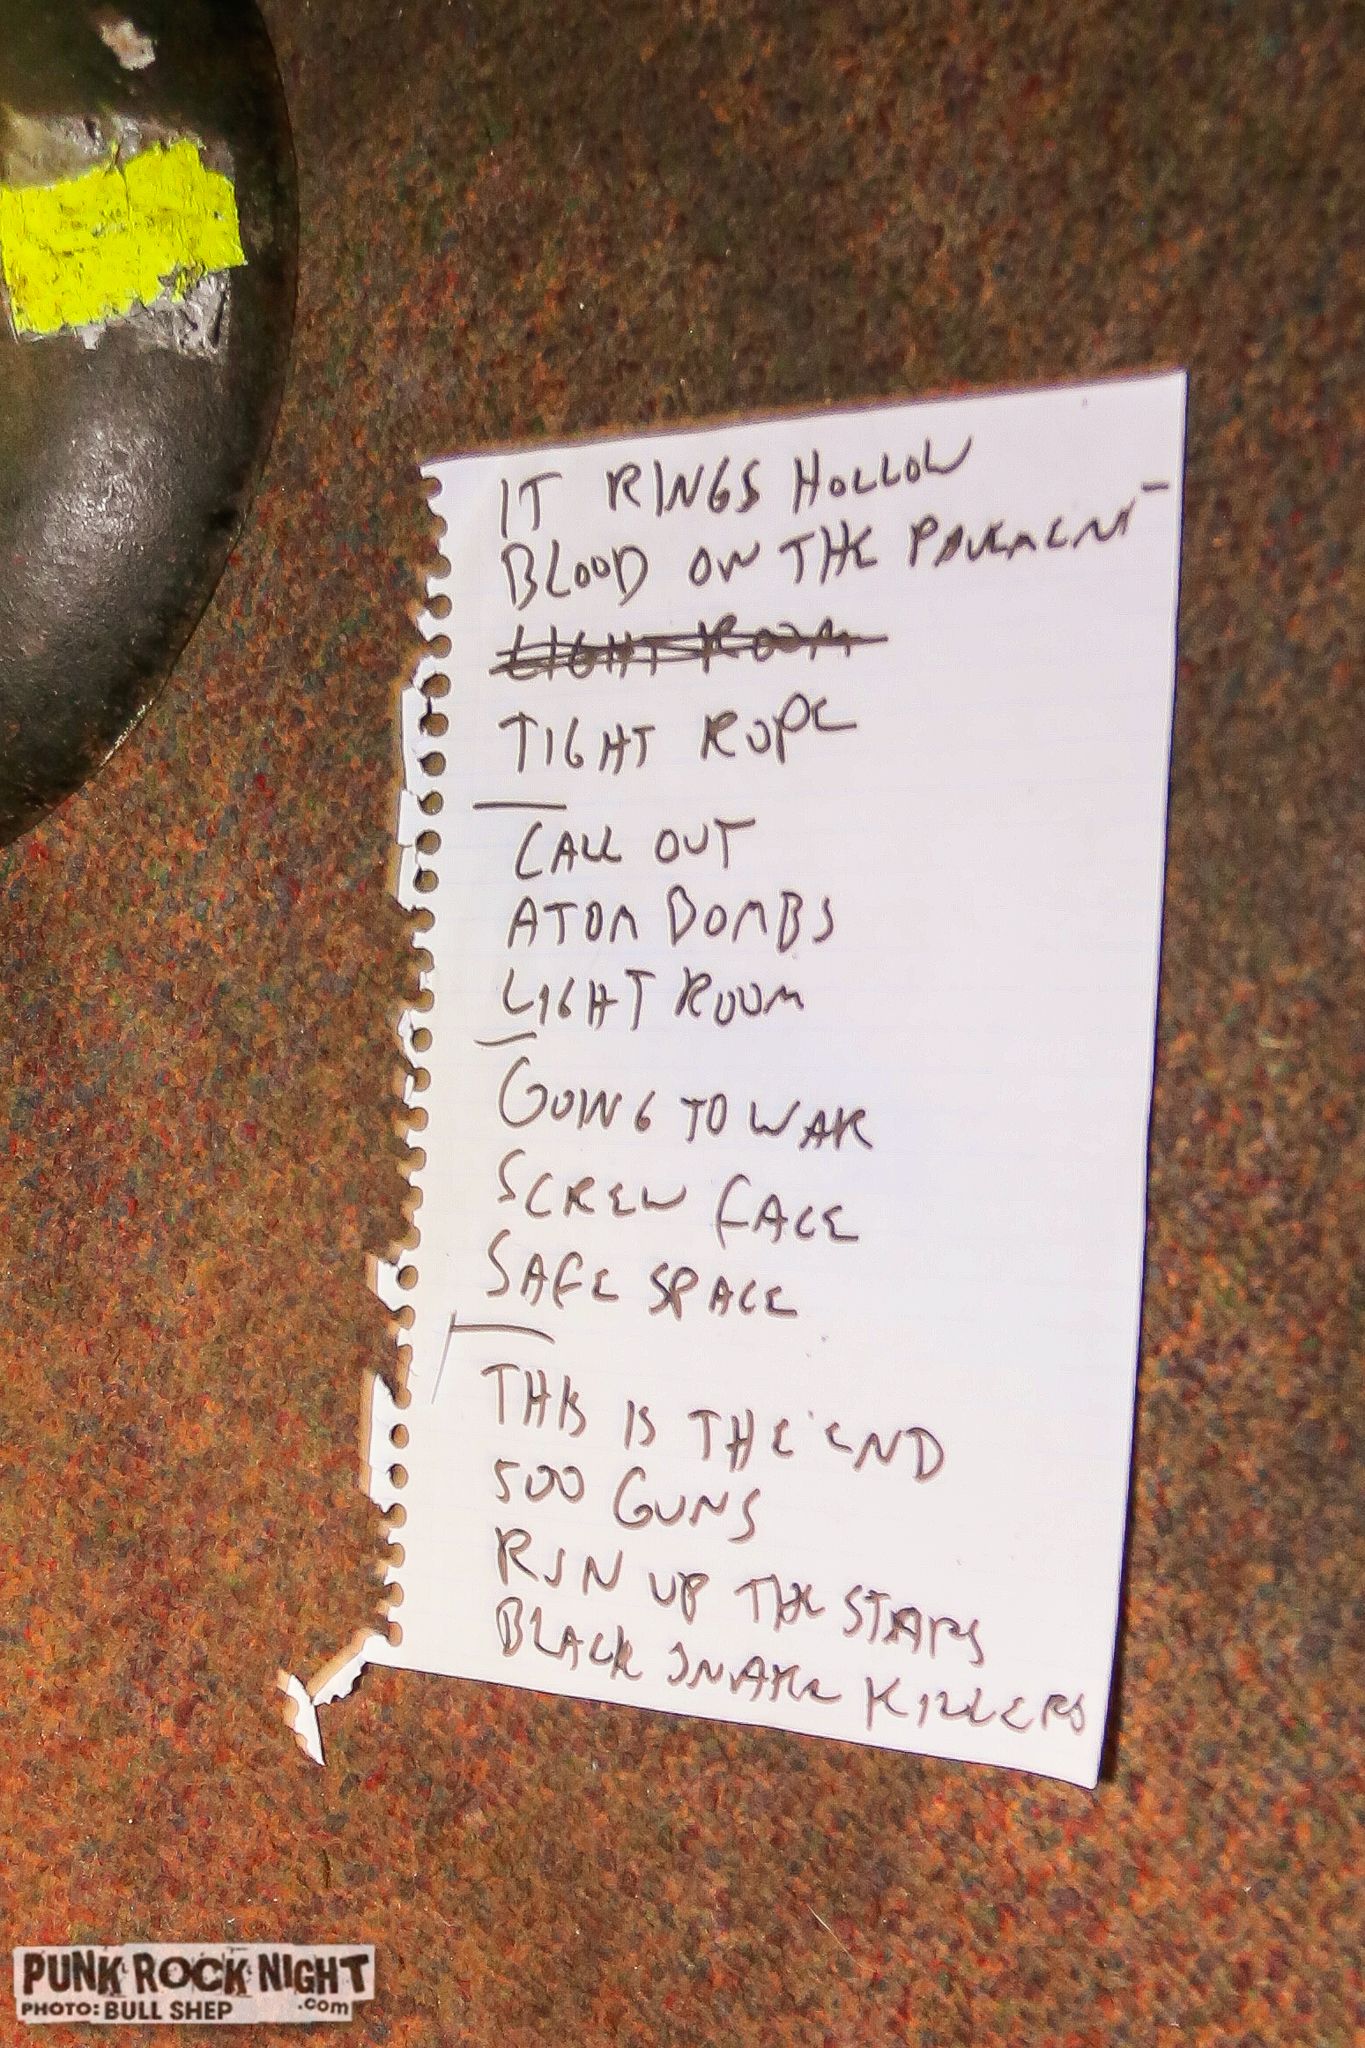 IT RINGS HOLLOW
BLOOD ON THE PAVEMENT
LIGHT ROOM
TIGHT ROPE
CALL OUT
ATOM BOMBS
LIGHT ROOM
GOING TO WAR
SCREW FACE
SAFE SPACE
THIS IS THE END
500 GUNS
RUN UP THE STAIRS
BLACK SNAKE KILLERS
PUNK ROCK NIGHT
.com
PHOTO: BULL SHEP